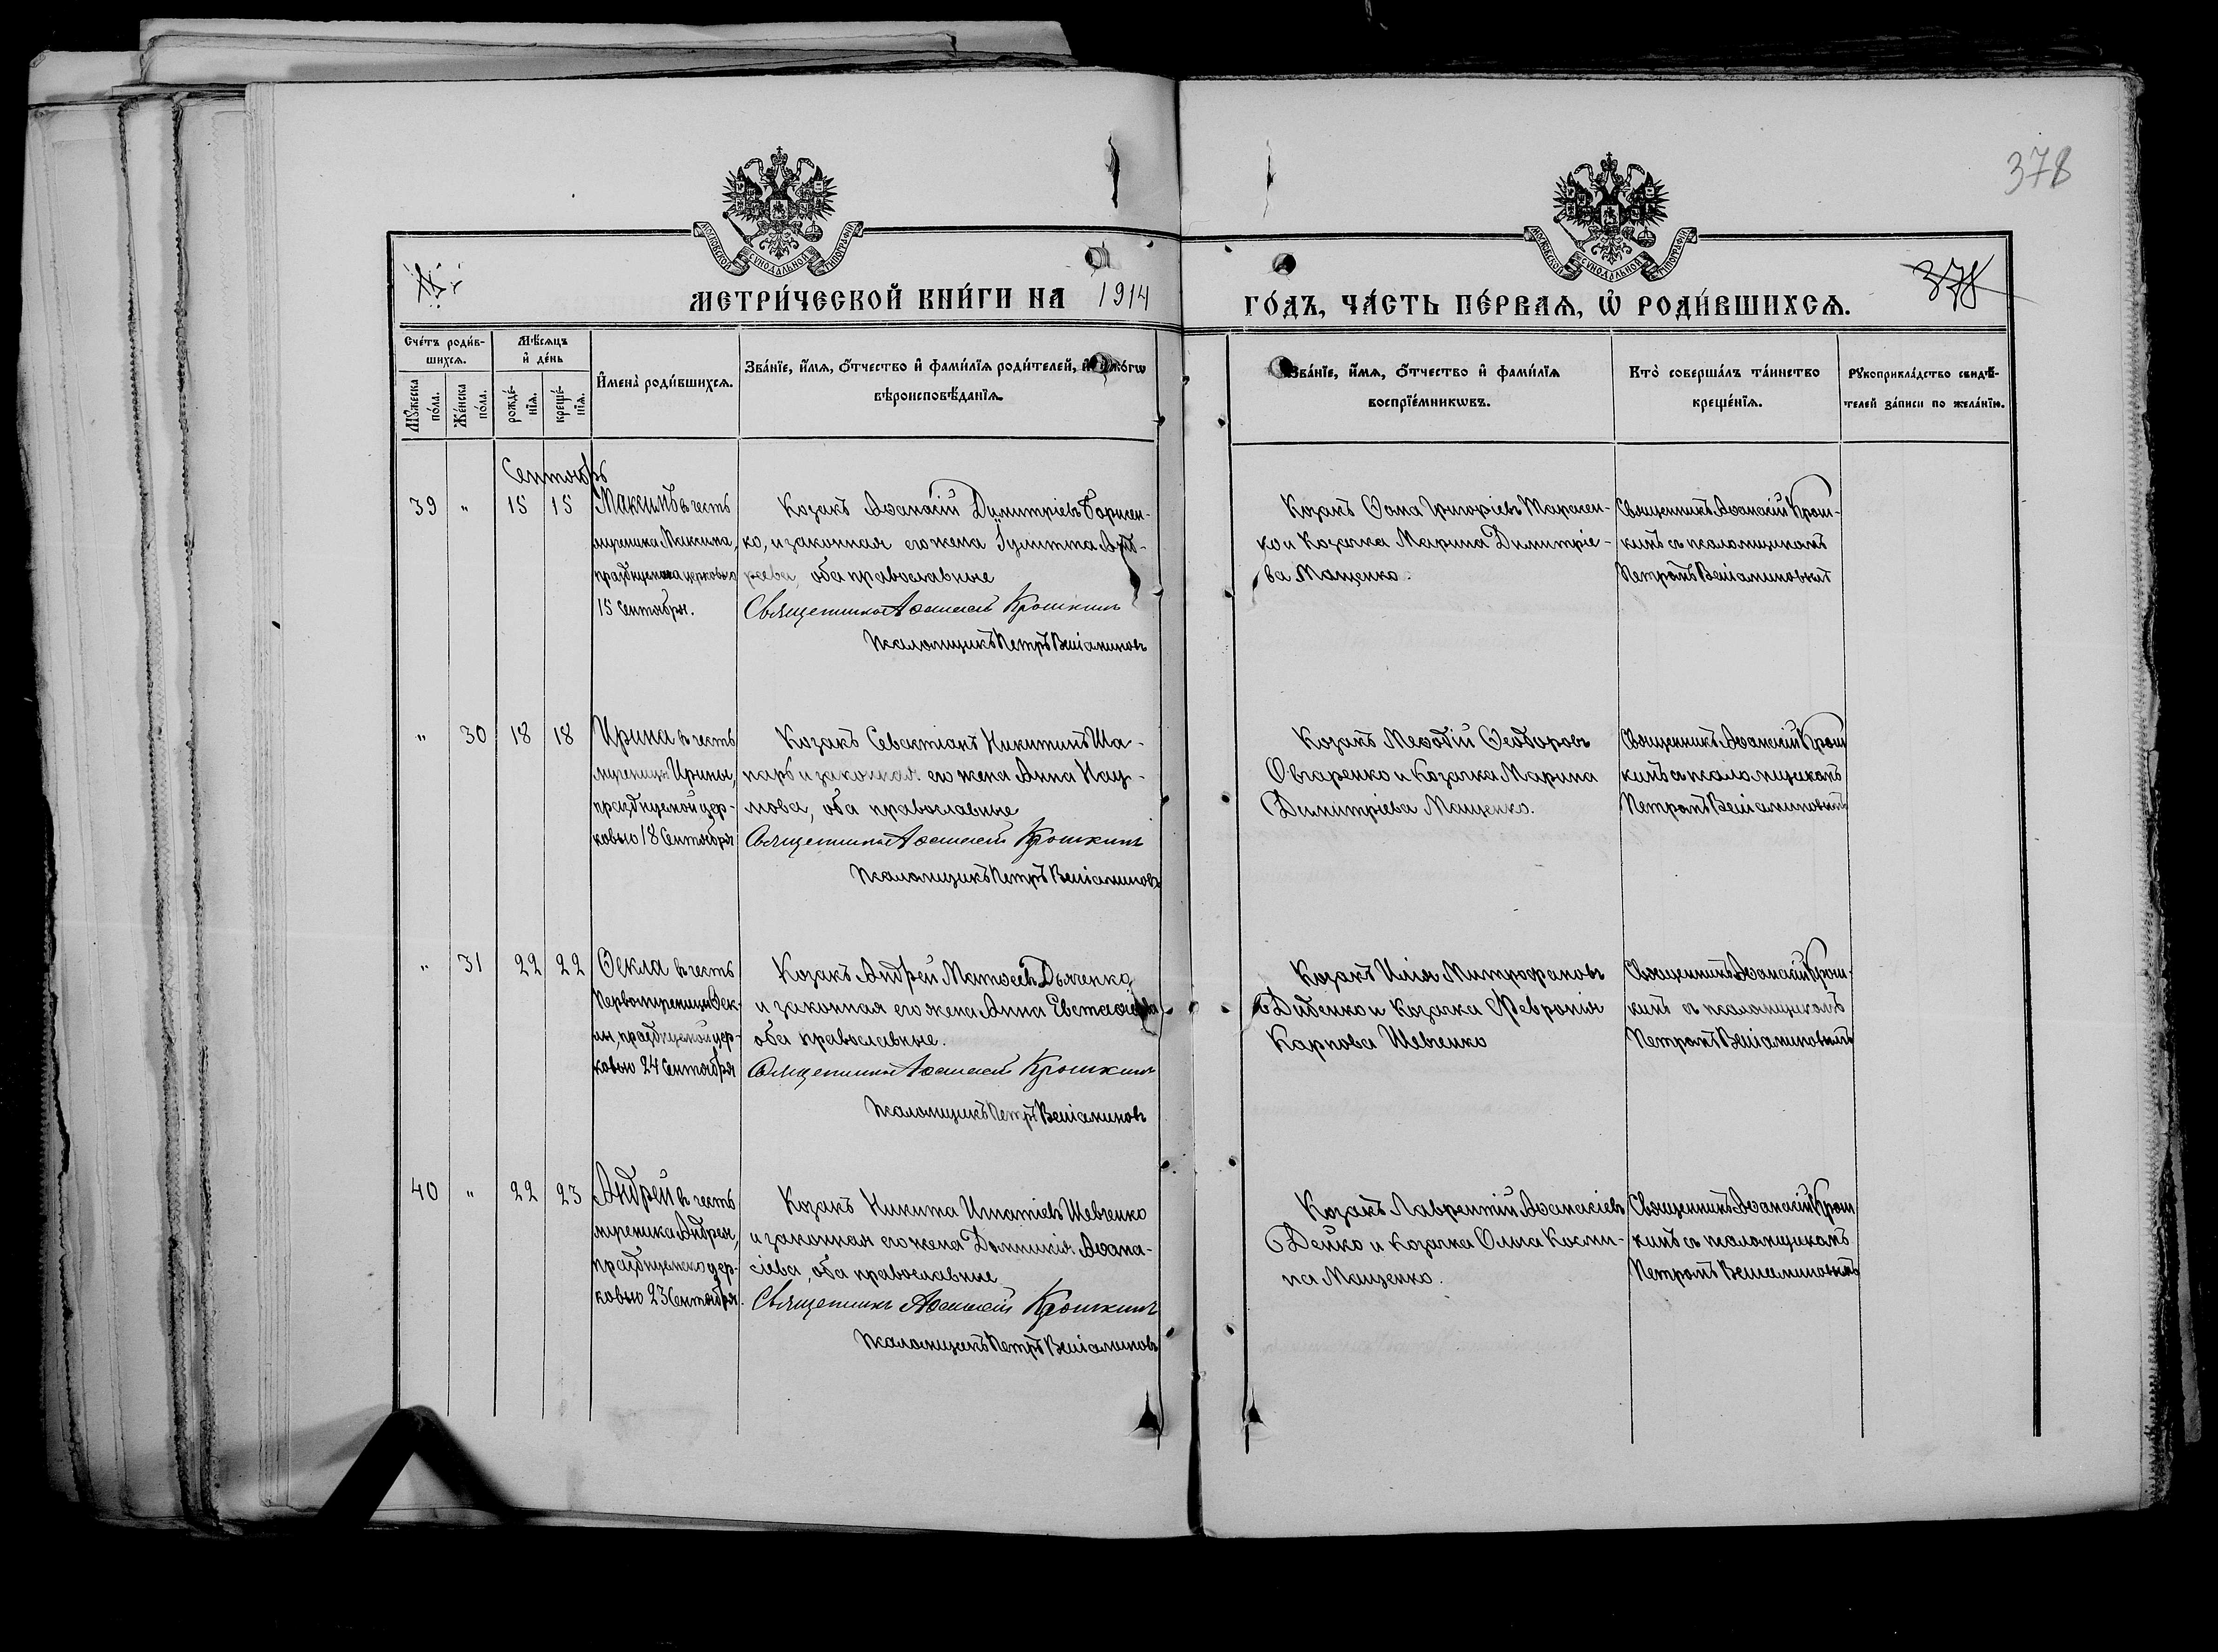 378
МОСКОВСКОЙ СѴНОДАЛЬНОЙ ТИПОГРАФІИ
МЕТРИ́ЧЕСКОЙ КНИ́ГИ НА 1914
Сче́тъ роди́в-
шихсѧ.
Мѣ́сѧцъ
и҆ де́нь
Мꙋ́жеска
по́ла.
Же́нска
по́ла.
рожде́-
нїѧ.
креще́-
нїѧ.
И҆мена̀ роди́вшихсѧ.
Зва́нїе, и҆́мѧ, ѻ҆́тчество и҆ фами́лїѧ роди́телей, и҆
вѣроисповѣ́данїѧ.
Сентябрь
39 " 15 15
Максимъ въ честь
мученика Максима,
15 Сентября.
Козакъ Аѳанасій Димитріевъ Борисен-
ко, и законная его жена Іулитта Анд-
реева, оба православные
Священникъ Аѳанасій Крошкинъ
Псаломщикъ Петръ Веніаминовъ
" 30 18 18
Ирина въ честь
мученицы Ирины,
празднуемой цер-
ковью 18 Сентября
Козакъ Севастіанъ Никитинъ Ша-
паръ и законная его жена Анна Нау-
мова, оба православные
Священникъ Аѳанасій Крошкинъ
Псаломщикъ Петръ Веніаминовъ
" 31 22 22
Ѳекла въ честь
Первомученицы Ѳек-
лы, празднуемой цер-
ковью 24 Сентября
Козакъ Андрей Матѳеевъ Дьяченко
и законная его жена Анна Евстаѳіева
оба православные.
Священникъ Аѳанасій Крошкинъ
Псаломщикъ Петръ Веніаминовъ
40 " 22 23
Андрей въ честь
мученика Андрея,
празднуемаго цер-
ковью 23 Сентября.
Козакъ Никита Игнатіевъ Шевченко
и законная его жена Домникія Аѳана-
сіева, оба православные
Священникъ Аѳанасій Крошкинъ
Псаломщикъ Петръ Веніаминовъ
МОСКОВСКОЙ СѴНОДАЛЬНОЙ ТИПОГРАФІИ
378
ГО́ДЪ, ЧА́СТЬ ПЕ́РВАѦ, Ѡ҆ РОДИ́ВШИХСѦ.
Зва́нїе, и҆́мѧ, ѻ҆́тчество и҆ фами́лїѧ
воспрїе́мникѡвъ.
Кто̀ соверша́лъ та́инство
креще́нїѧ.
Рꙋкоприкла́дство свидѣ́-
телей за́писи по жела́нїю.
Козакъ Ѳома Григоріевъ Тарасен-
ко и Козачка Марина Димитріе-
ва Мащенко.
Священникъ Аѳанасій Крош-
кинъ съ псаломщикомъ
Петромъ Веніаминовымъ
Козакъ Меѳодій Ѳеодоровъ
Овчаренко и Козачка Марина
Димитріева Мащенко.
Священникъ Аѳанасій Крош
кинъ съ псаломщикомъ
Петромъ Веніаминовымъ
Козакъ Илія Митрофановъ
Диденко и Козачка Февронія
Карпова Шевченко
Священникъ Аѳанасій Крош-
кинъ съ псаломщикомъ
Петромъ Веніаминовымъ
Козакъ Лаврентій Аѳанасіевъ
Дейко и Козачка Ольга Косми-
на Мащенко.
Священникъ Аѳанасій Крош
кинъ съ псаломщикомъ
Петромъ Веніаминовымъ